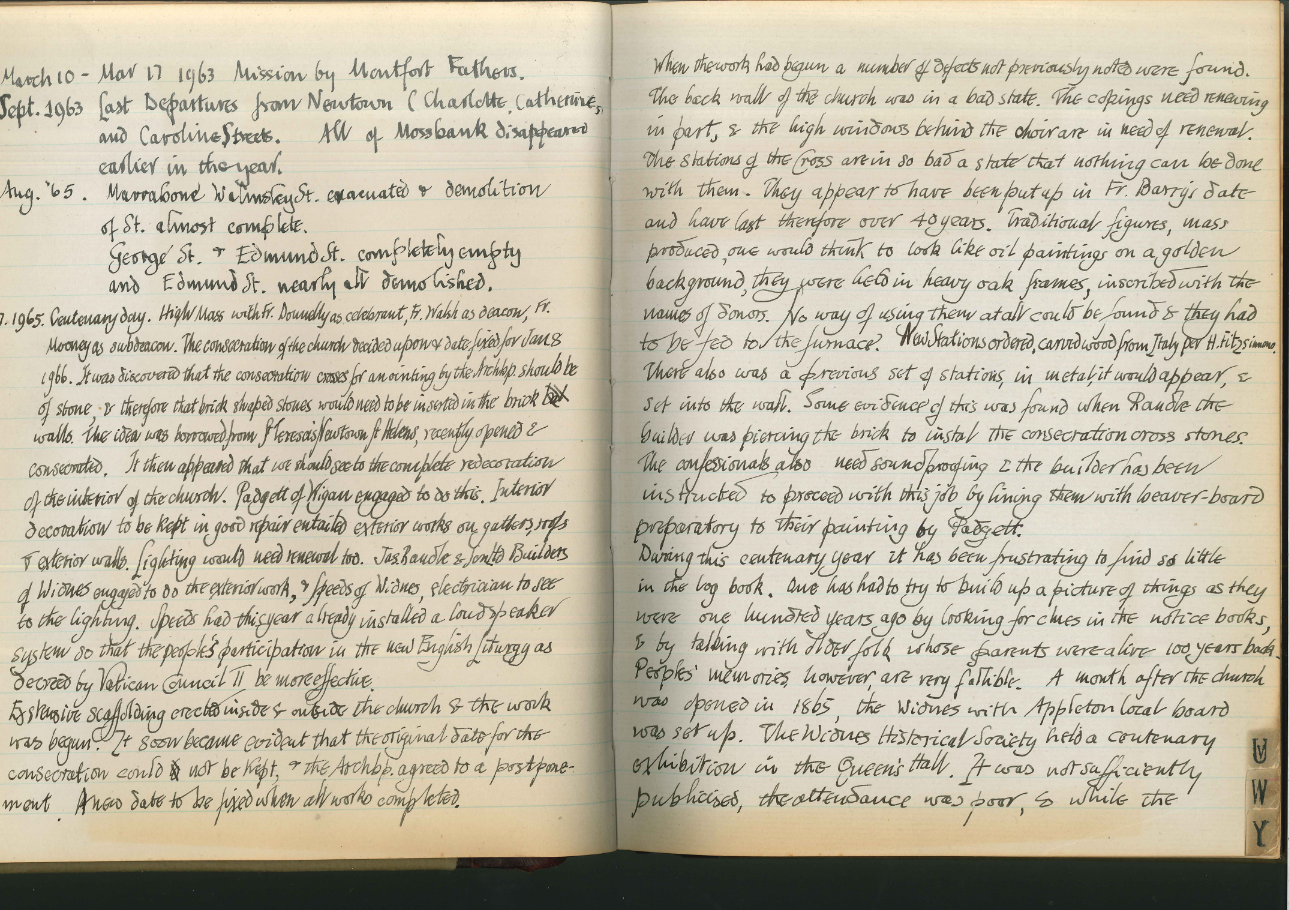 March 10 - Mar 17 1963 Mission by Montfort Fathers.
Sept. 1963 Last Departures from Newtown ( Charlotte, Catherine,
and Caroline Streets. All of Mossbank disappeared
earlier in the year.
Aug. '65. Marrabone Walmsley St. evacuated & demolition
of St. almost complete.
George St. & Edmund St. completely empty
and Edmund St. nearly all demolished.
7. 1965. Centenary day. High Mass with Fr. Donnelly as celebrant, Fr. Walsh as deacon, Fr.
Mooney as subdeacon. The consecration of the church decided upon & date fixed for Jan 8
1966. It was discovered that the consecration crosses for anointing by the Archbp. should be
of stone, & therefore that brick shaped stones would need to be inserted in the brick
walls. The idea was borrowed from St Teresa's Newtown St Helens, recently opened &
consecrated. It then appeared that we should see to the complete redecoration
of the interior of the church. Padgett of Wigan engaged to do this. Interior
decoration to be kept in good repair entailed exterior works on gutters, roofs
& exterior walls. Lighting would need renewal too. Jas Randle & Son Ltd Builders
of Widnes engaged to do the exterior work, & Speeds of Widnes, electrician to see
to the lighting. Speeds had this year already installed a loud speaker
system so that the people's participation in the new English Liturgy as
decreed by Vatican Council II be more effective.
Extensive scaffolding erected inside & outside the church & the work
was begun. It soon became evident that the original date for the
consecration could not be kept, & the Archbp. agreed to a postpone-
ment. A new date to be fixed when all works completed.
When the work had begun a number of defects not previously noted were found.
The back wall of the church was in a bad state. The copings need renewing
in part, & the high windows behind the choir are in need of renewal.
The stations of the Cross are in so bad a state that nothing can be done
with them. They appear to have been put up in Fr. Barry's date
and have last therefore over 40 years. Traditional figures, mass
produced, one would think to look like oil paintings on a golden
background, they were held in heavy oak frames, inscribed with the
names of donors. No way of using them at all could be found & they had
to be fed to the furnace. New Stations ordered, carved wood from Italy per H. Fitzsimons.
There also was a previous set of stations, in metal, it would appear, &
set into the wall. Some evidence of this was found when Randle the
builder was piercing the brick to instal the consecration cross stones.
The confessionals also need soundproofing & the builder has been
instructed to proceed with this job by lining them with beaver-board
preparatory to their painting by Padgett.
During this centenary year it has been frustrating to find so little
in the log book. One has had to try to build up a picture of things as they
were one hundred years ago by looking for clues in the notice books,
& by talking with older folk whose parents were alive 100 years back.
Peoples' memories, however, are very fallible. A month after the church
was opened in 1865, the Widnes with Appleton local board
was set up. The Widnes Historical Society held a centenary
exhibition in the Queen's Hall. It was not sufficiently
publicised, the attendance was poor, & while the
U
W
Y